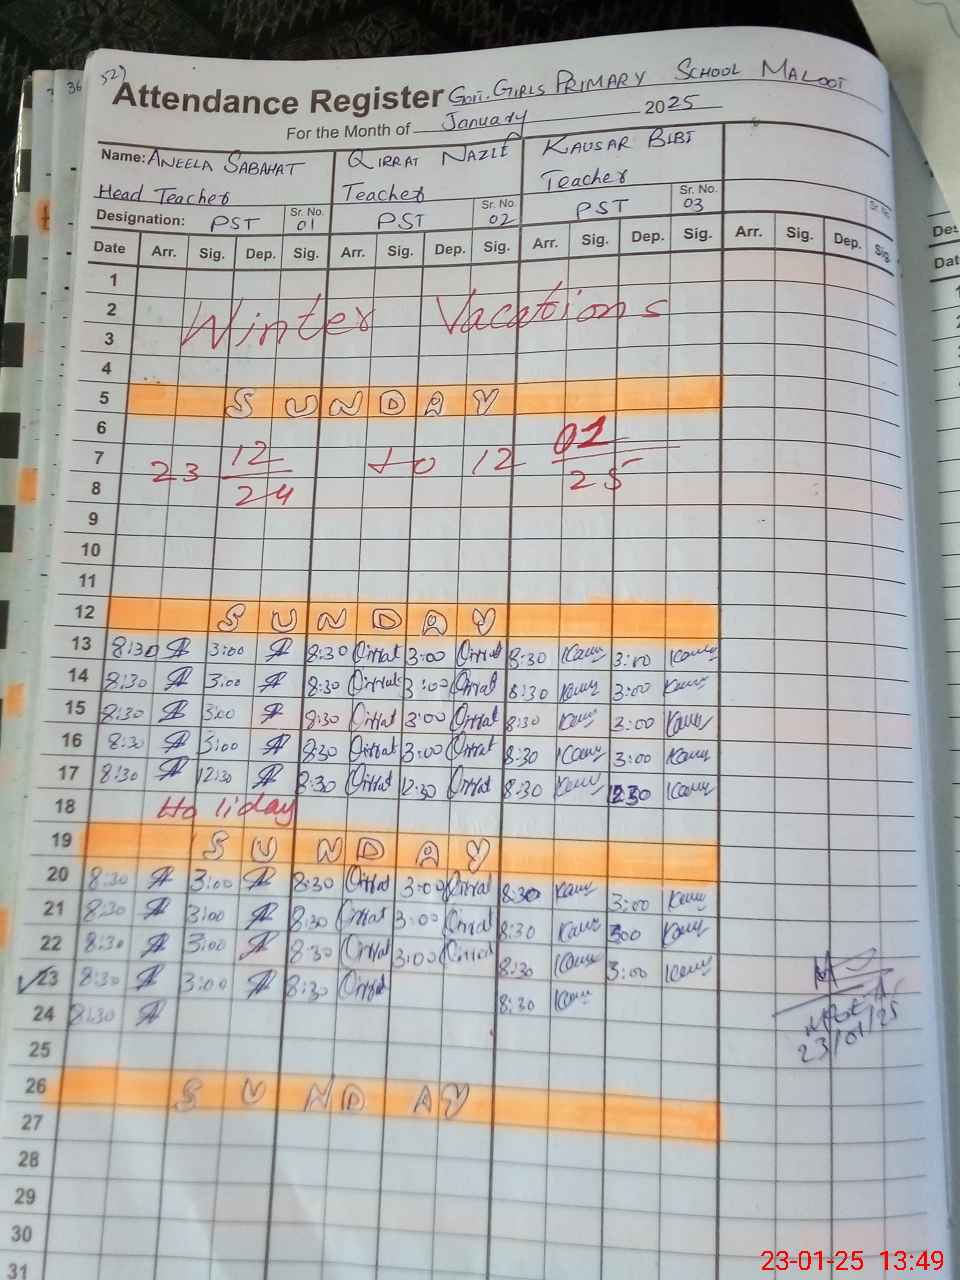 52)
36
Attendance Register Govt. GIRLS PRIMARY SCHOOL MALOOT
For the Month of January 2025
Name: ANEELA SABAHAT QIRRAT NAZIR KAUSAR BIBI
Head Teacher Teacher Teacher
Designation: PST Sr. No. 01 PST Sr. No. 02 PST Sr. No. 03 Sr. No.
Date Arr. Sig. Dep. Sig. Arr. Sig. Dep. Sig. Arr. Sig. Dep. Sig. Arr. Sig. Dep. Sig.
1
2 Winter Vacations
3
4
5 SUNDAY
6
7 23 12/24 to 12 01/25
8
9
10
11
12 SUNDAY
13 8:30 3:00 8:30 Qirrat 3:00 Qirrat 8:30 Kausr 3:00 Kausr
14 8:30 3:00 8:30 Qirrat 3:00 Qirrat 8:30 Kausr 3:00 Kausr
15 8:30 3:00 8:30 Qirrat 3:00 Qirrat 8:30 Kausr 3:00 Kausr
16 8:30 3:00 8:30 Qirrat 3:00 Qirrat 8:30 Kausr 3:00 Kausr
17 8:30 12:30 8:30 Qirrat 12:30 Qirrat 8:30 Kausr 1230 Kausr
18 Holiday
19 SUNDAY
20 8:30 3:00 8:30 Qirrat 3:00 Qirrat 8:30 Kausr 3:00 Kausr
21 8:30 3:00 8:30 Qirrat 3:00 Qirrat 8:30 Kausr 300 Kausr
22 8:30 3:00 8:30 Qirrat 3:00 Qirrat 8:30 Kausr 3:00 Kausr
23 8:30 3:00 8:30 Qirrat 8:30 Kausr
24 8:30
23/01/25
25
26 SUNDAY
27
28
29
30
31
23-01-25 13:49